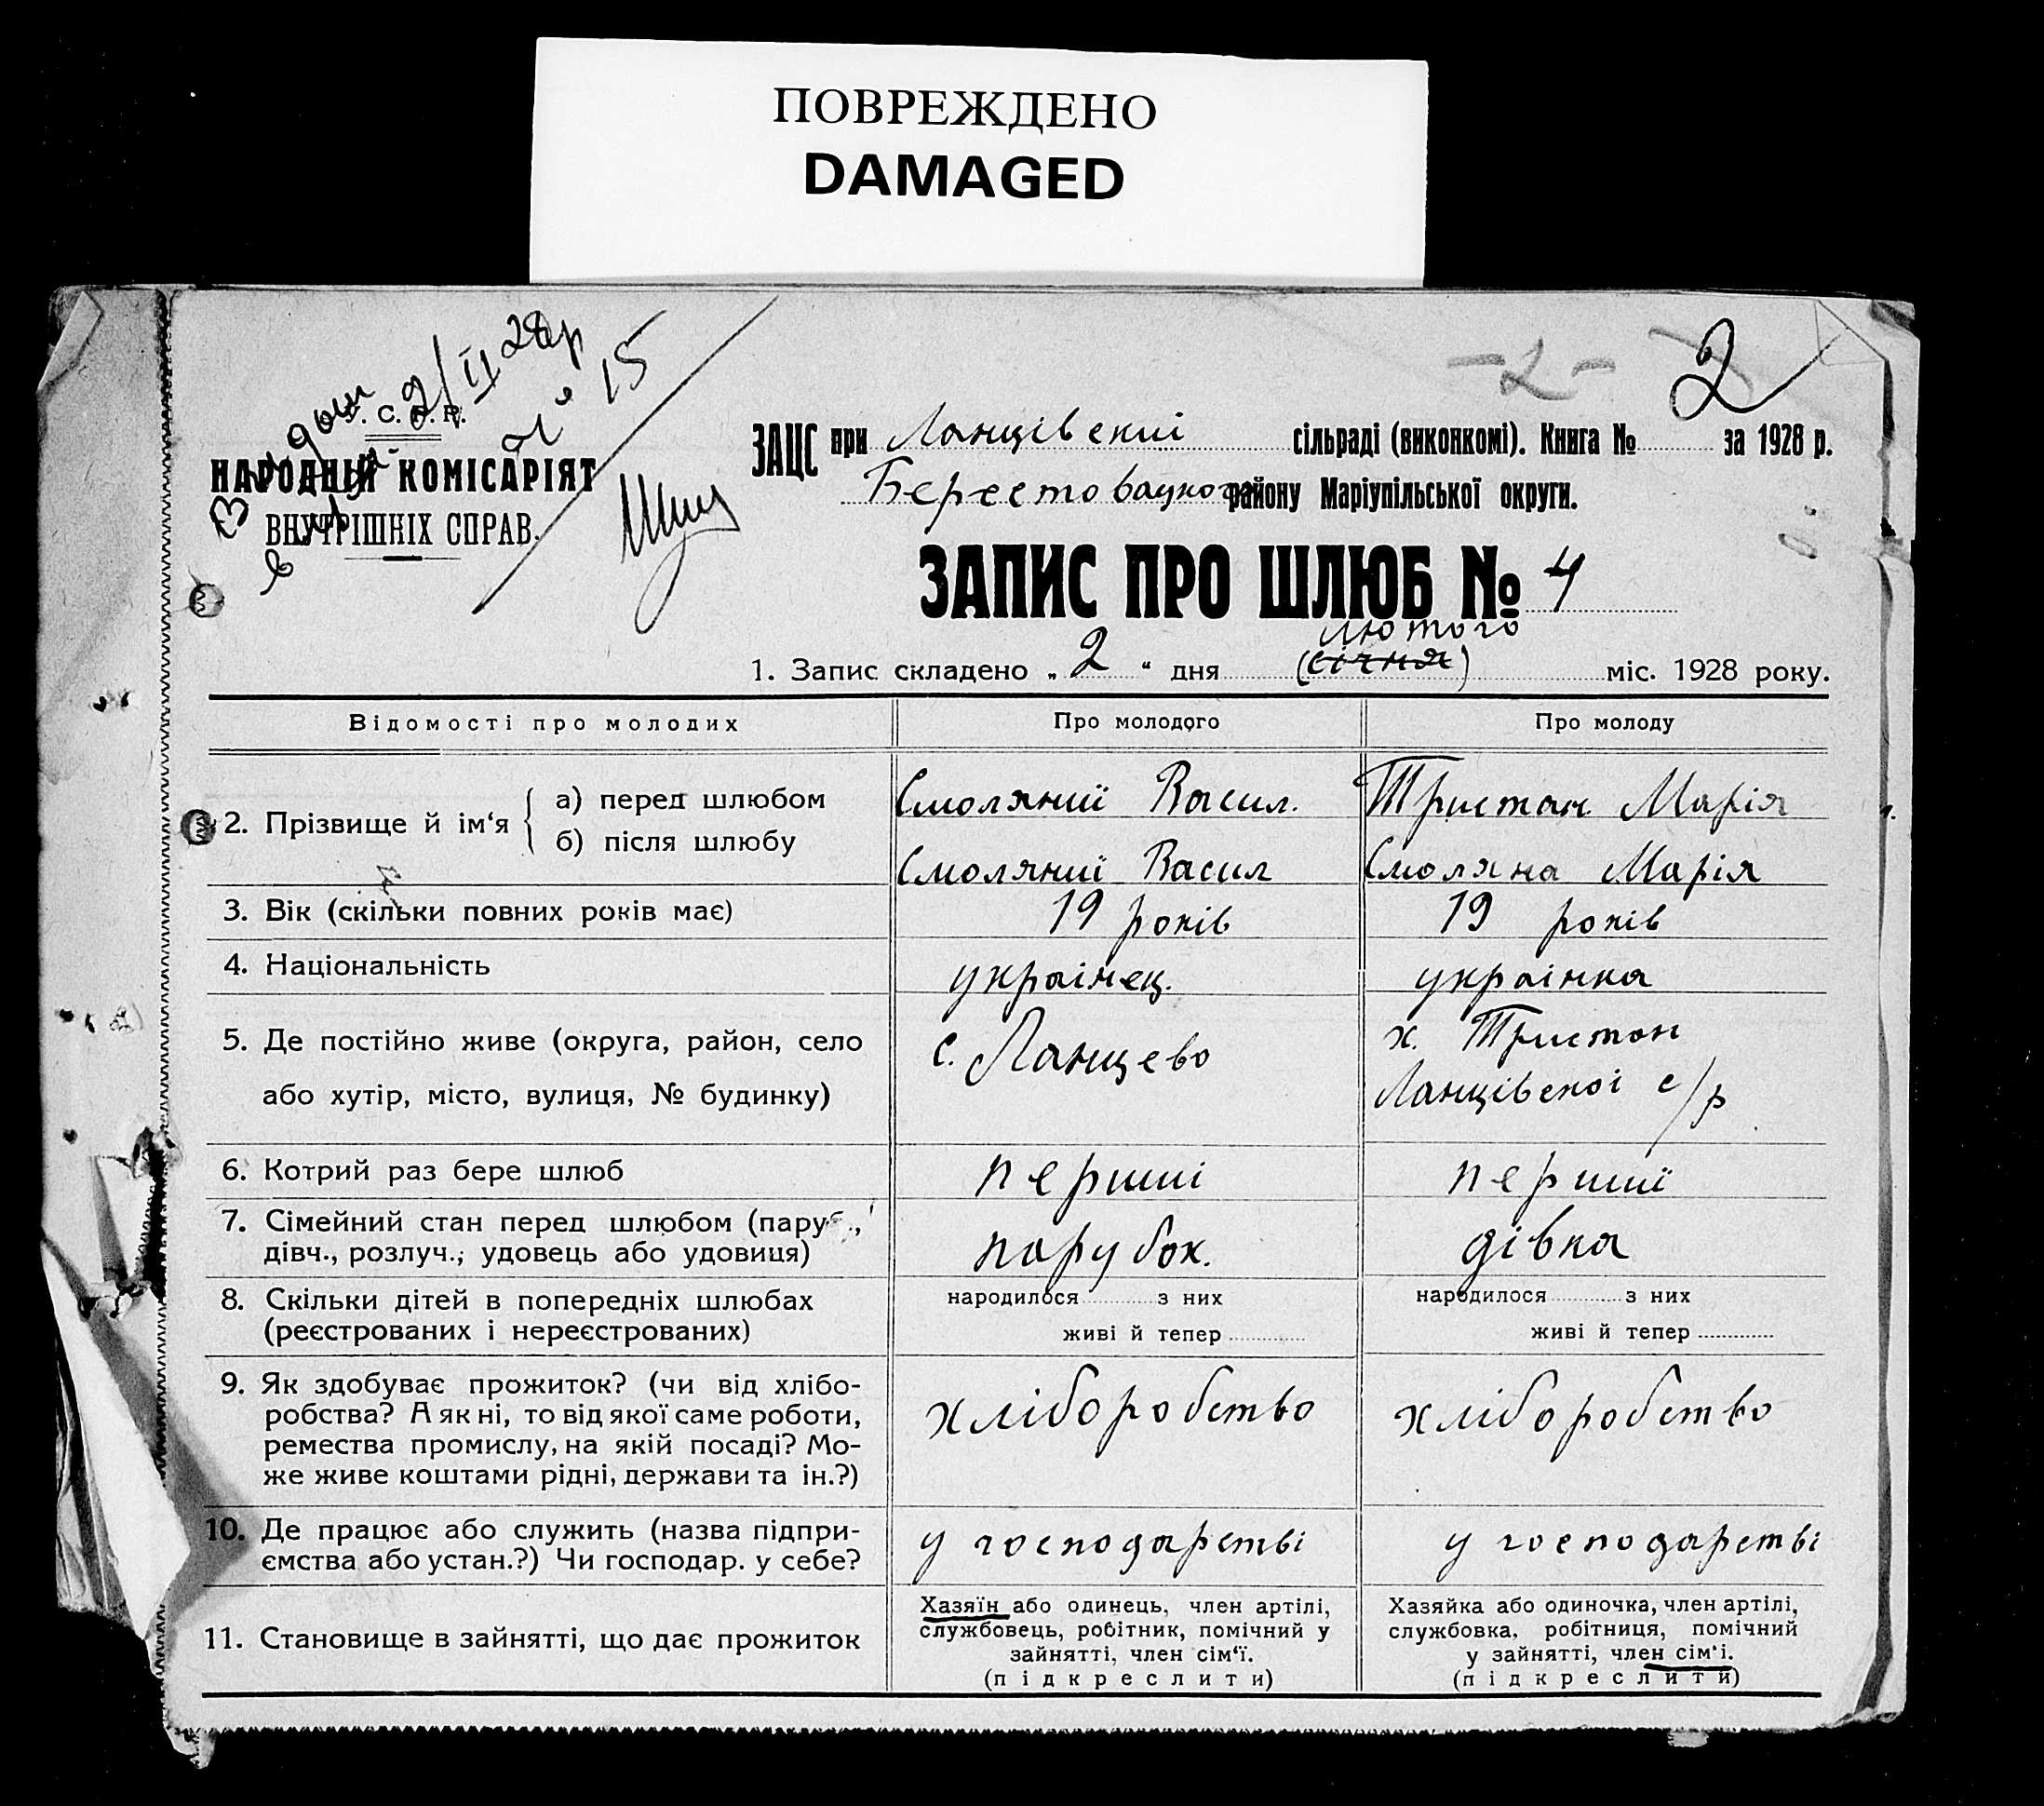 ПОВРЕЖДЕНО
DAMAGED
2/II 28р
№ 15
-2-
2
У. С. Р. Р.
НАРОДНІЙ КОМІСАРІЯТ
ВНУТРІШНІХ СПРАВ.
ЗАЦС при Ланцівскій сільраді (виконкомі). Книга № за 1928 р.
Берестовацкого району Маріупільської округи.
ЗАПИС ПРО ШЛЮБ № 4
лютого
1. Запис складено „2“ дня (січня) міс. 1928 року.
Відомості про молодих Про молодого Про молоду
2. Прізвище й ім‘я { а) перед шлюбом Смоляний Васил. Тристан Марія
б) після шлюбу Смоляний Васил Смоляна Марія
3. Вік (скільки повних років має) 19 років 19 років
4. Національність украінец. украінка
5. Де постійно живе (округа, район, село с. Ланцево х. Тристан
або хутір, місто, вулиця, № будинку) Ланцівскоі с/р
6. Котрий раз бере шлюб перший перший
7. Сімейний стан перед шлюбом (паруб., парубок. дівка
дівч., розлуч., удовець або удовиця)
8. Скільки дітей в попередніх шлюбах народилося з них народилося з них
(реєстрованих і нереєстрованих) живі й тепер живі й тепер
9. Як здобуває прожиток? (чи від хлібо-
робства? А як ні, то від якої саме роботи, хліборобство хліборобство
ремества промислу, на якій посаді? Мо-
же живе коштами рідні, держави та ін.?)
10. Де працює або служить (назва підпри- у господарстві у господарстві
ємства або устан.?) Чи господар. у себе?
11. Становище в зайнятті, що дає прожиток
Хазяїн або одинець, член артілі,
службовець, робітник, помічний у
зайнятті, член сім‘ї.
(підкреслити)
Хазяйка або одиночка, член артілі,
службовка, робітниця, помічний
у зайнятті, член сім‘і.
(підкреслити)